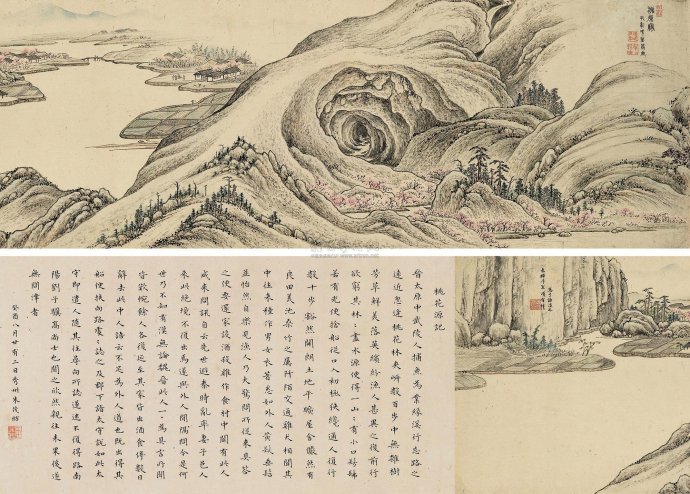 桃花源記
晉太原中武陵人捕魚為業緣溪行忘路之
遠近忽逢桃花林夾岸數百步中無雜樹
芳草鮮美落英繽紛漁人甚異之復前行
欲窮其林〻盡水源便得一山〻有小口髣髴
若有光便捨船從口入初極狹纔通人復行
數十步豁然開朗土地平曠屋舍儼然有
良田美池桑竹之屬阡陌交通雞犬相聞其
中往來種作男女衣著悉如外人黃髮垂髫
並怡然自樂見漁人乃大驚問所從來具答
之便要還家設酒殺雞作食村中聞有此人
咸來問訊自云先世避秦時亂率妻子邑人
來此絕境不復出焉遂與外人間隔問今是何
世乃不知有漢無論魏晉此人一〻為具言所聞
皆歎惋餘人各復延至其家皆出酒食停數日
辭去此中人語云不足為外人道也既出得其
船便扶向路處〻誌之及郡下詣太守說如此太
守即遣人隨其往尋向所誌遂迷不復得路南
陽劉子驥高尚士也聞之欣然親往未果後遂
無問津者
癸酉八月廿有二日秀州朱茂